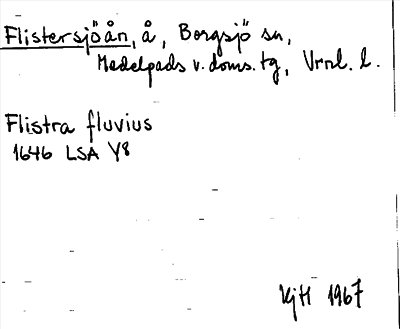 Flistersjöån, å, Borgsjö sn,
Medelpads v. doms. tg, Vrnl. l.
Flistra fluvius
1646 LSA Y8
KjH 1967